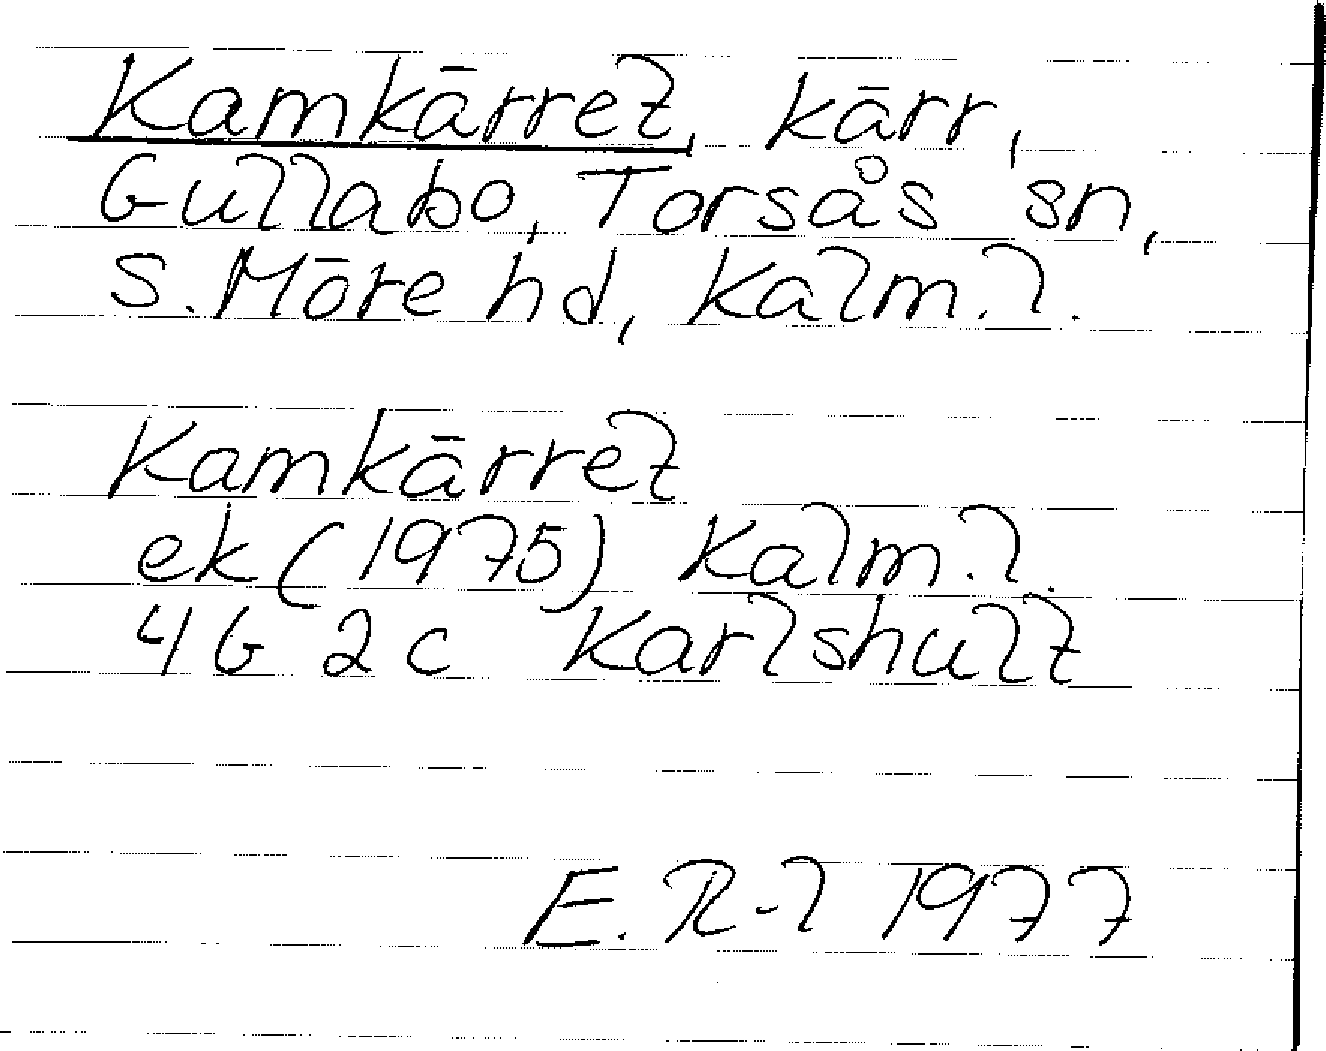 Kamkärret, kärr,
Gullabo, Torsås sn,
S. Möre hd, Kalm. l.
Kamkärret
ek (1975) Kalm. l.
4G 2c Karlshult
E. R-l 1977